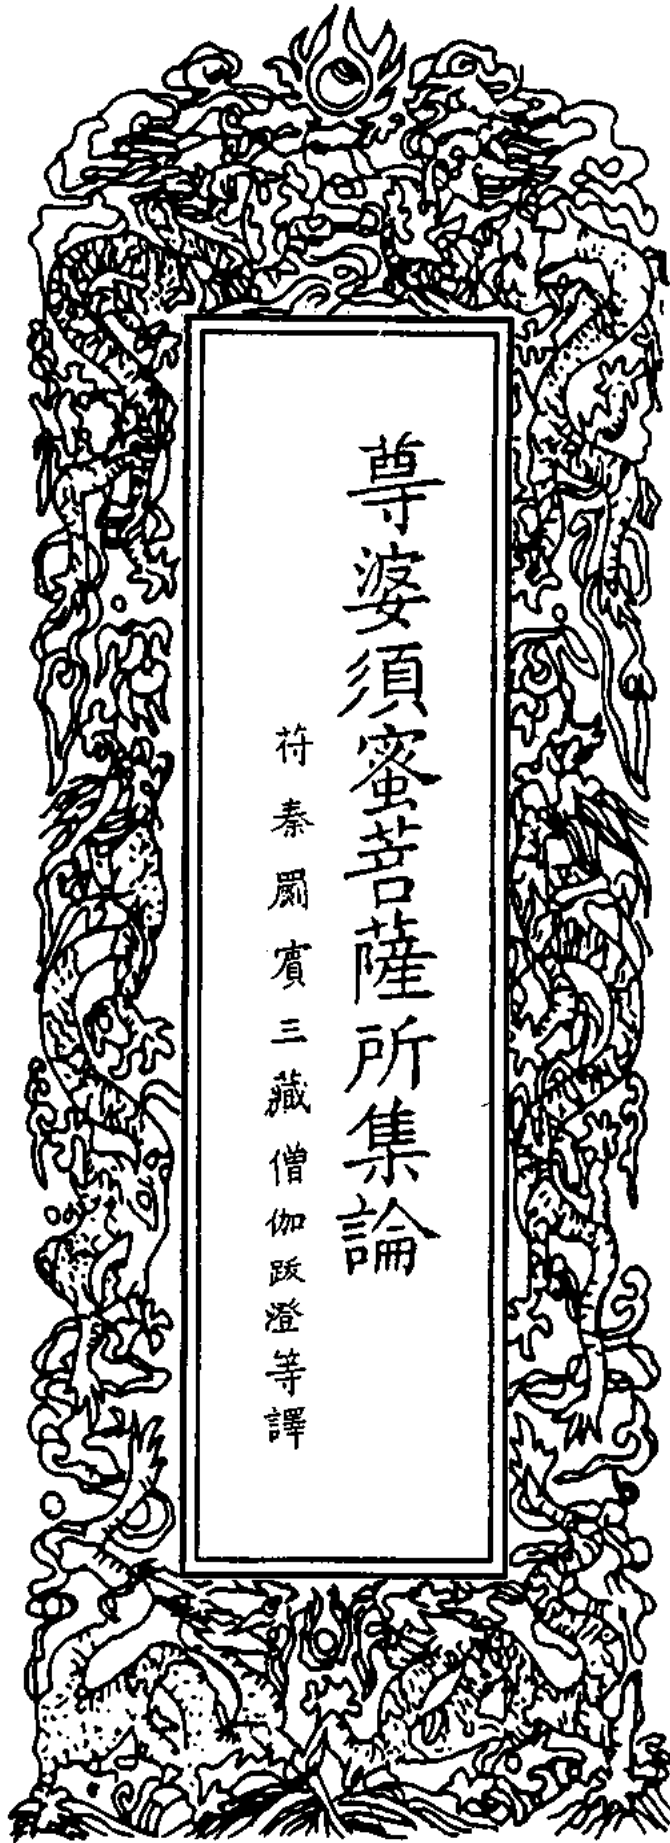 尊婆須蜜菩薩所集論
苻秦罽賓三藏僧伽跋澄等譯